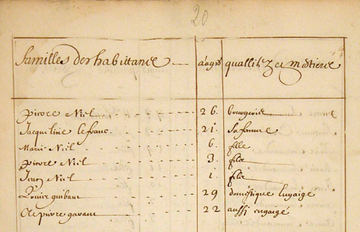 20
familles des habittans aages qualitez et mestiers
pierre Niel 26. bourgeois
Jacqueline lefranc 21. sa femme
Marie Niel 6. fille
pierre Niel 3. filz
Niel 1. filz
Louis guibaut 29 domestique engaigé
pierre gavant 22 aussi engaigé